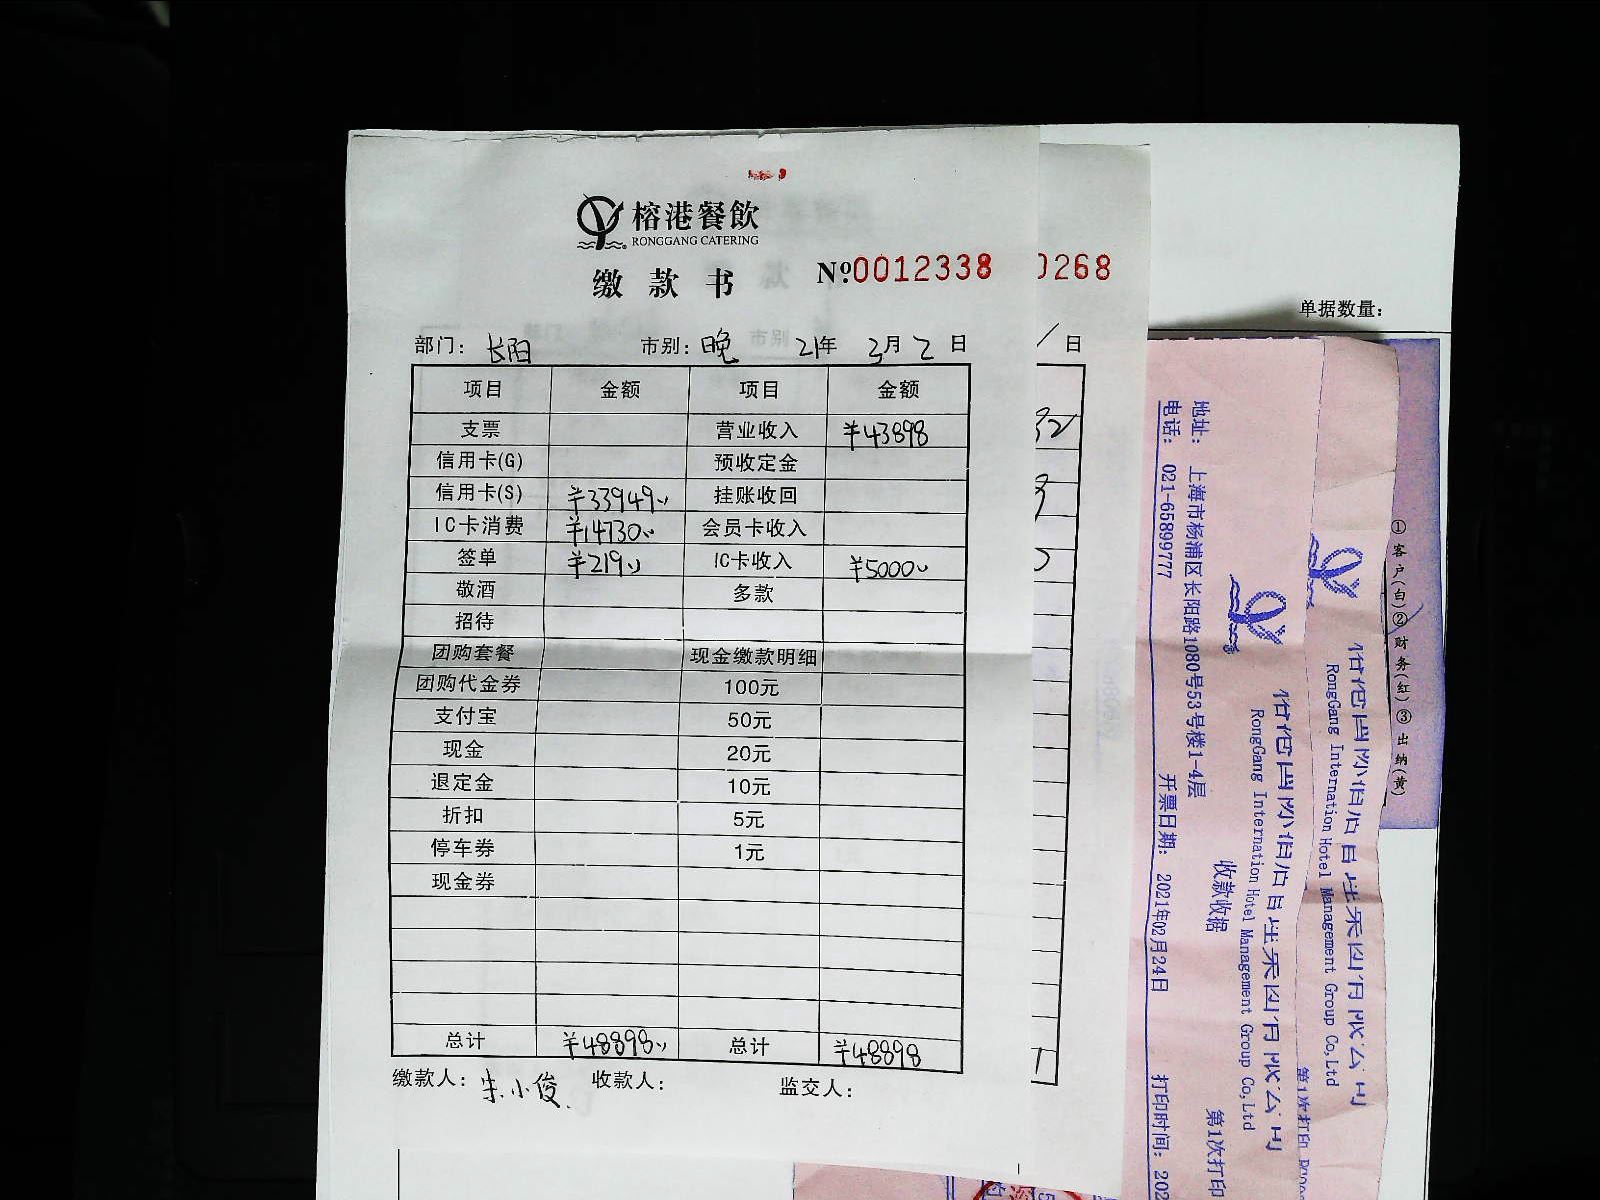 榕港餐飲
RONGGANG CATERING
缴款书 №0012338
0268
单据数量：
部门： 长阳 市别： 晚 21年 3月 2日
日
项目 金额 项目 金额
支票 营业收入 ¥43898
信用卡(G) 预收定金
信用卡(S) ¥33949 挂账收回
IC卡消费 ¥14730 会员卡收入
签单 ¥219 IC卡收入 ¥5000
敬酒 多款
招待
团购套餐 现金缴款明细
团购代金券 100元
支付宝 50元
现金 20元
退定金 10元
折扣 5元
停车券 1元
现金券
总计 ¥48898 总计 ¥48898
缴款人： 朱小俊 收款人： 监交人：
地址： 上海市杨浦区长阳路1080号53号楼1-4层
电话： 021-65899777
开票日期： 2021年02月24日
打印时间： 202
收款收据
第1次打印
RongGang Internation Hotel Management Group Co,Ltd
RongGang Internation Hotel Management Group Co,Ltd
第1次打印
①客户(白)②财务(红)③出纳(黄)